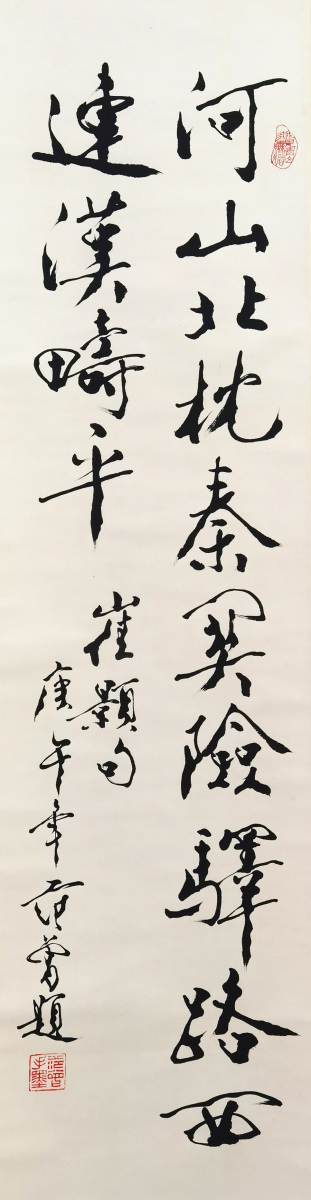 河山北枕秦關險驛路西
連漢疇平
崔顥句
庚午年范曾題